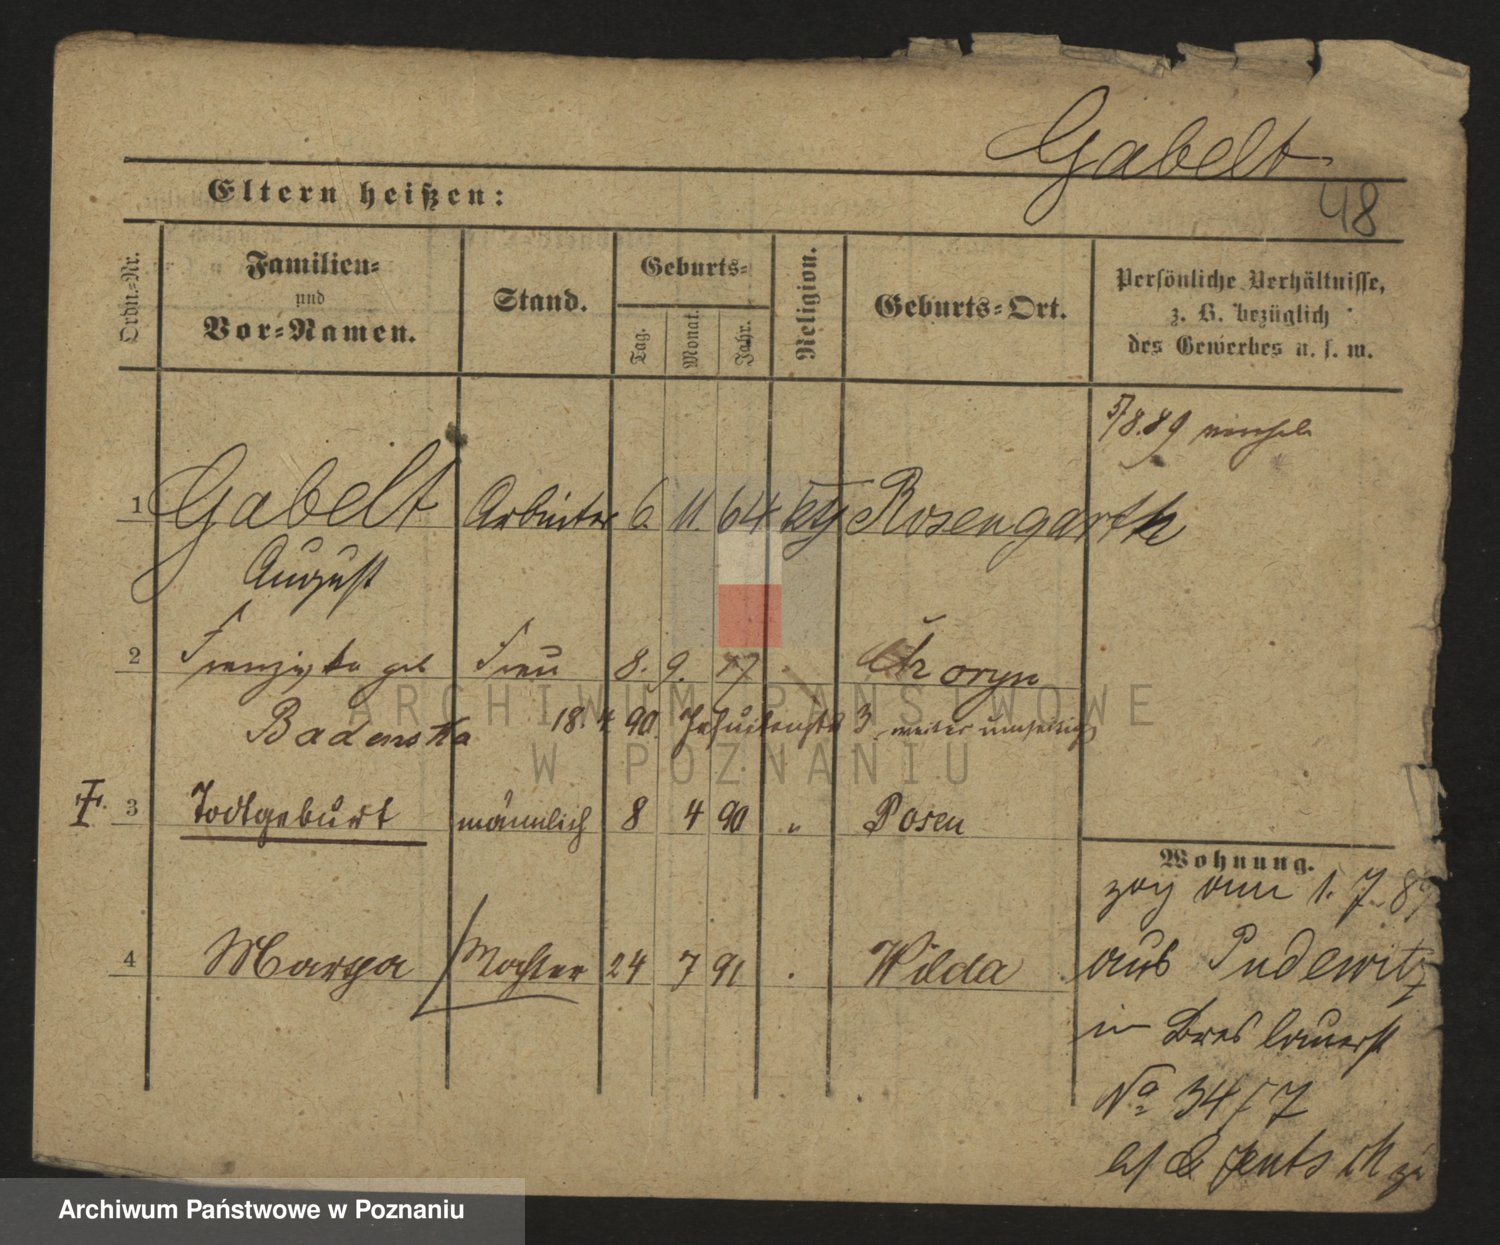 Gabelt
48
Eltern heißen:
Ordn.-Nr.
Familien-
und
Vor-Namen.
Stand.
Geburts-
Tag.
Monat.
Jahr.
Religion.
Geburts-Ort.
Persönliche Verhältnisse,
z. B. bezüglich
des Gewerbes u. s. w.
5/8.89
1 Gabelt Arbeiter 6. 11. 64 Rosengarth
August
2 geb Frau 8. 9. Choryn
Badenska 18. 4. 90. Jesuitenstr 3. weiter umseitig
3 Todtgeburt männlich 8 4 90 " Posen
Wohnung.
zog am 1. 7. 89
4 Tochter 24 7 91 Wilda
aus Pudewitz
in Breslauerst
No 34/7
ARCHIWUM PAŃSTWOWE
W POZNANIU
Archiwum Państwowe w Poznaniu